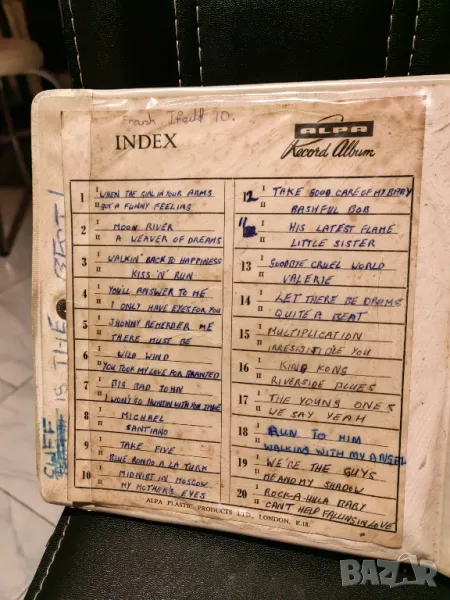 Frank Ifield 10.
INDEX
ALPA
Record Album
1 I WHEN THE GIRL IN YOUR ARMS
II GOT A FUNNY FEELING
2 I MOON RIVER
II A WEAVER OF DREAMS
3 I WALKIN' BACK TO HAPPINESS
II KISS 'N' RUN
4 I YOU'LL ANSWER TO ME
II I ONLY HAVE EYES FOR YOU
5 I JHONNY REMEMBER ME
II THERE MUST BE
6 I WILD WIND
II YOU TOOK MY LOVE FOR GRANTED
7 I BIG BAD JOHN
II I WON'T GO HUNTIN WITH YOU JAKE
8 I MICHAEL
II SANTIANO
9 I TAKE FIVE
II BLUE RONDO A LA TURK
10 I MIDNIST IN MOSCOW
II MY MOTHER'S EYES
12 I TAKE GOOD CARE OF MY BABY
II BASHFUL BOB
11 I HIS LATEST FLAME
II LITTLE SISTER
13 I GOODBYE CRUEL WORLD
II VALERIE
14 I LET THERE BE DRUMS
II QUITE A BEAT
15 I MULTIPLICATION
II IRRESISTIBLE YOU
16 I KING KONG
II RIVERSIDE BLUES
17 I THE YOUNG ONES
II WE SAY YEAH
18 I RUN TO HIM
II WALKING WITH MY ANGEL
19 I WE'RE THE GUYS
II ME AND MY SHADOW
20 I ROCK-A-HULA BABY
II CAN'T HELP FALLING IN LOVE
ALPA PLASTIC PRODUCTS LTD., LONDON, E.18.
IS THE BEST!
BAZAR